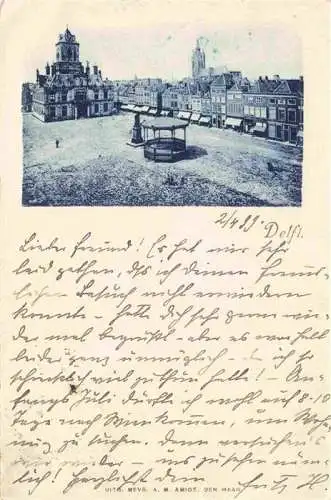 2/4 99. Delft.
Lieber Freund! Es hat mir sehr
leid gethan, daß ich deinen freund-
lichen Besuch nicht erwiedern
konnte – hätte dich sehr gern wie-
der mal begrüßt – aber es war halt
leider ganz unmöglich – da ich so
schrecklich viel zu thun hatte! – An-
fangs Juli dürfte ich wohl auf 8-10
Tage nach kommen, um
zu suchen. Dann versuchen
wir wieder – uns zu sehen näm-
lich! Herzlichst dein Fritz
UITG. MEVR. A. M. AMIOT. DEN HAAG